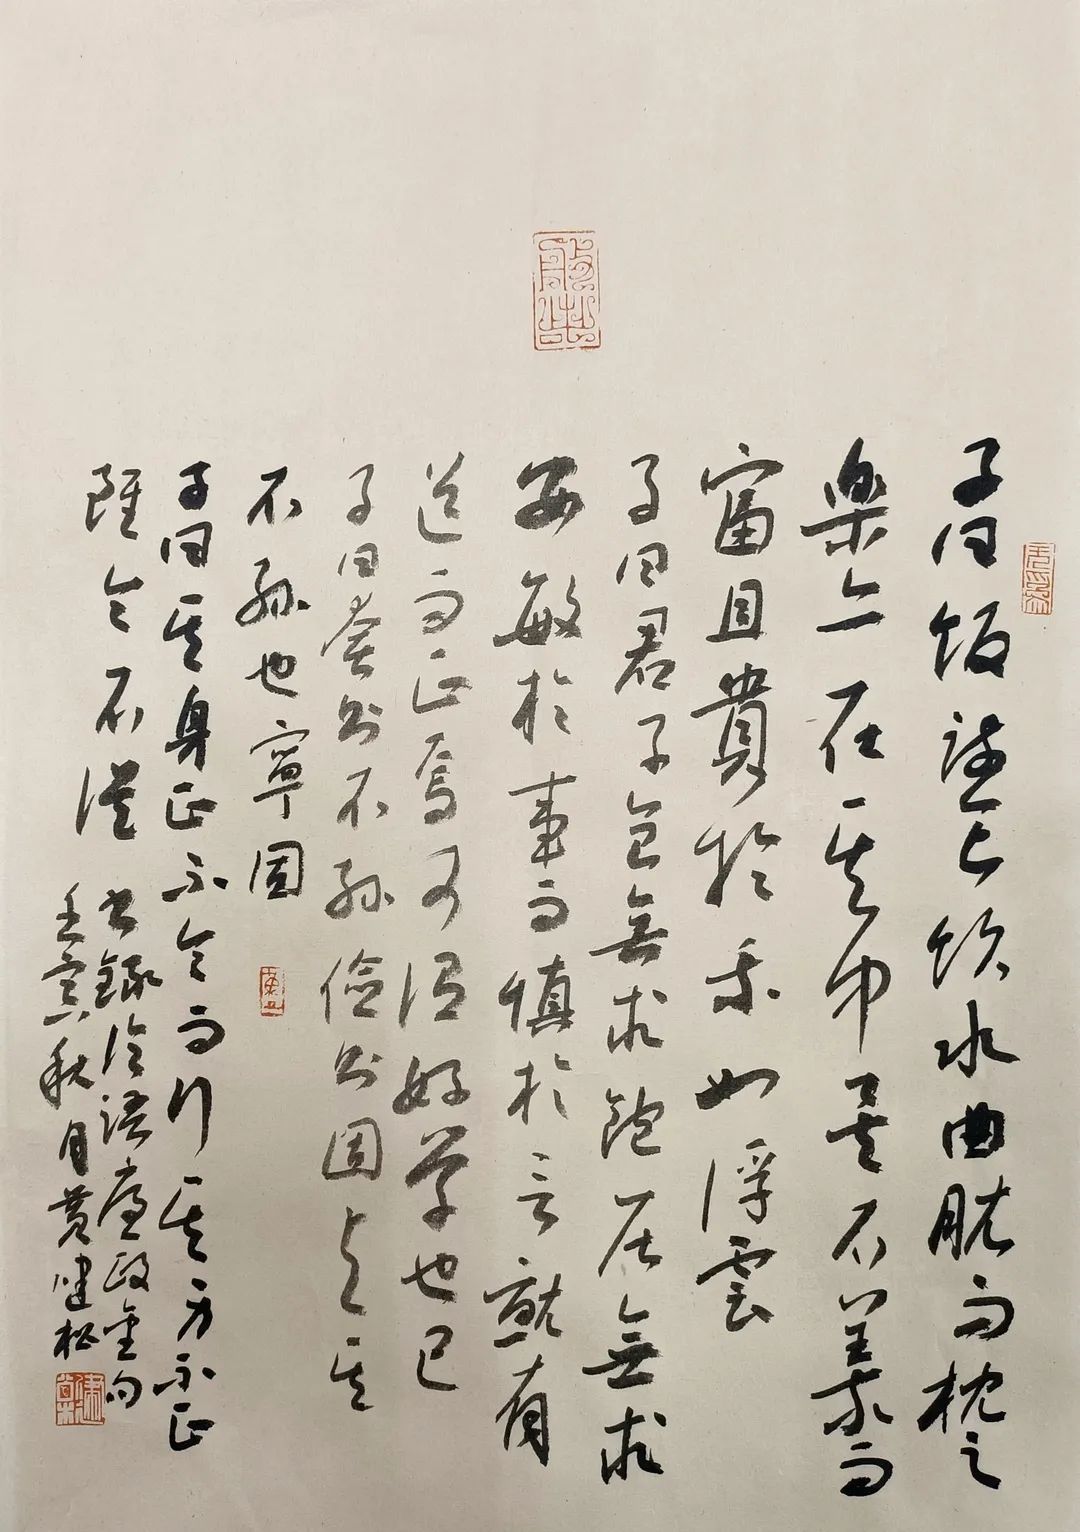 子曰飯疏食飲水曲肱而枕之
樂亦在其中矣不義而
富且貴於我如浮雲
子曰君子食無求飽居無求
安敏於事而慎於言就有
道而正焉可謂好學也已
子曰奢則不孫儉則固與其
不孫也寧固
子曰其身正不令而行其身不正
雖令不從 書錄論語廉政金句
壬寅秋月黄健松